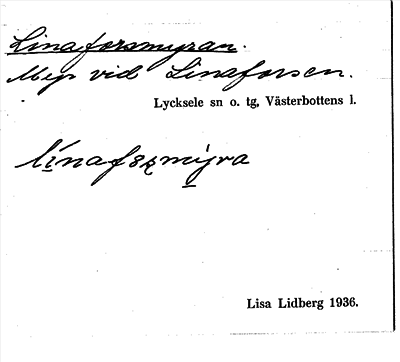 Linaforsmyran.
Myr vid Linaforsen.
Lycksele sn o. tg, Västerbottens l.
Lisa Lidberg 1936.